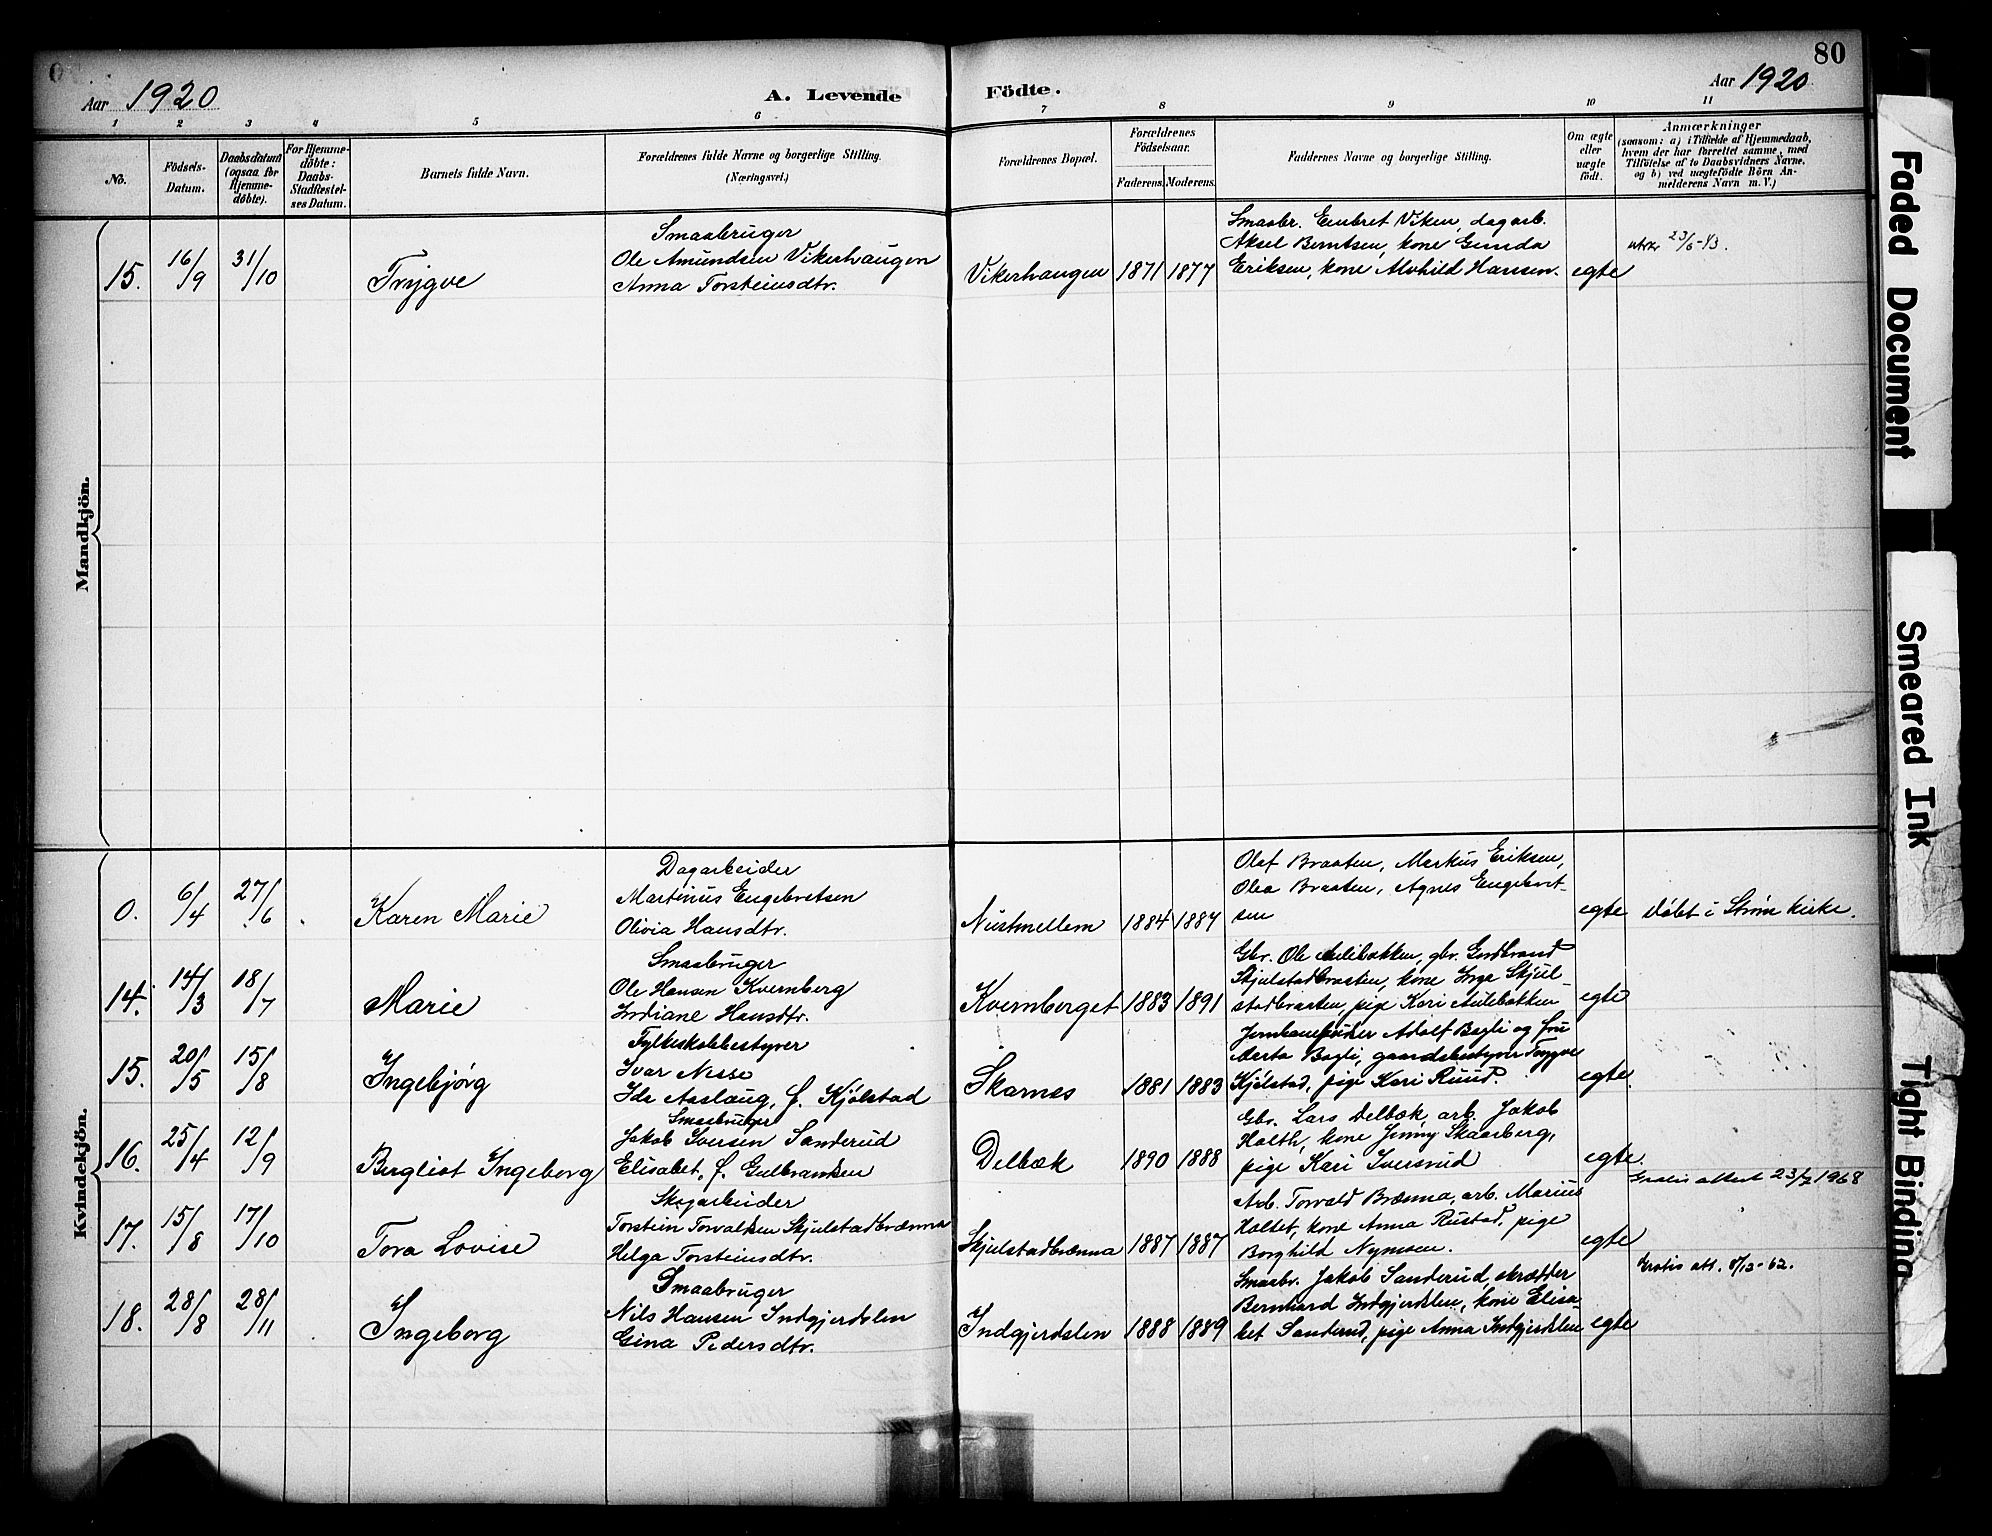 80
Aar 1920
A. Levende Födte.
Aar 1920
1 2 3 4 5 6 7 8 9 10 11
No.
Födsels-
Datum.
Daabsdatum
(ogsaa for
Hjemme-
døbte).
For Hjemme-
døbte:
Daabs-
Stadfæstel-
ses Datum.
Barnets fulde Navn.
Forældrenes fulde Navne og borgerlige Stilling.
(Næringsvei.)
Forældrenes Bopæl.
Forældrenes
Födselsaar.
Faderens. Moderens.
Faddernes Navne og borgerlige Stilling.
Om ægte
eller
uægte
födt.
Anmærkninger
(saasom: a) i Tilfælde af Hjemmedaab,
hvem der har forrettet samme, med
Tilføielse af to Daabsvidners Navne,
og b) ved uægtefödte Börn An-
melderens Navn m. V.)
Mandkjön.
15. 16/9 31/10 Trygve
Smaabruger
Ole Amundsen Vikerhaugen
Anna Torsteinsdtr.
Vikerhaugen 1871 1877
Smaabr. Embret Viken, dagarb.
Aksel Berntsen, kone Gunda
Eriksen, kone Alvhild Hansen.
egte
23/6-43.
Kvindekjön.
0. 6/4 27/6 Karen Marie
Dagarbeider
Martinus Engebretsen
Olivia Hansdtr.
Nustmellem 1884 1887
Olaf Braaten, Markus Eriksen,
Olea Braaten, Agnes Engebret-
sen
egte
Døbt i Strøm kirke.
14. 14/3 18/7 Marie
Smaabruger
Ole Hansen Kvernberg
Indiane Hansdtr.
Kvernberget 1883 1891
Gbr. Ole Aulibakken, gbr. Gudbrand
Skjulstadbraaten, kone Inga Skjul-
stadbraaten, pige Kari Aulibakken
egte
15. 20/5 15/8 Ingebjørg
Fylkeskolebestyrer
Ivar Nesse
Ida Aaslaug, f. Kjølstad
Skarnes 1881 1883
Adolf Bagli og fru
Bagli, gaardsbestyrer Trygve
Kjølstad, pige Kari Ruud.
egte.
16. 25/4 12/9 Bergliot Ingeborg
Smaabruger
Jakob Iversen Sanderud
Elisabet, f. Gulbrandsen
Delbæk 1890 1888
Gbr. Lars Delbæk, arb. Jakob
Holth, kone Jenny Skaarberg,
pige Kari Iversrud
egte.
Gratis attest 23/2 1968
17. 15/8 17/10 Tora Lovise
Skogarbeider
Torstein Torvaldsen Skjulstadbrænna
Helga Torsteinsdtr.
Skjulstadbrænna 1887 1887
Arb. Torvald Brænna, arb. Marius
Holtet, kone Anna Rustad, pige
Borghild Nymoen.
egte
Gratis att. 8/12-62.
18. 28/8 28/11 Ingeborg
Smaabruger
Nils Hansen Indgjerdslen
Gina Pedersdtr.
Indgjerdslen 1888 1889
Smaabr. Jakob Sanderud, skrædder
Bernhard Indgjerdslen, kone Elisa-
bet Sanderud, pige Anna Indgjerdslen
egte
Faded Document
Smeared Ink
Tight Binding